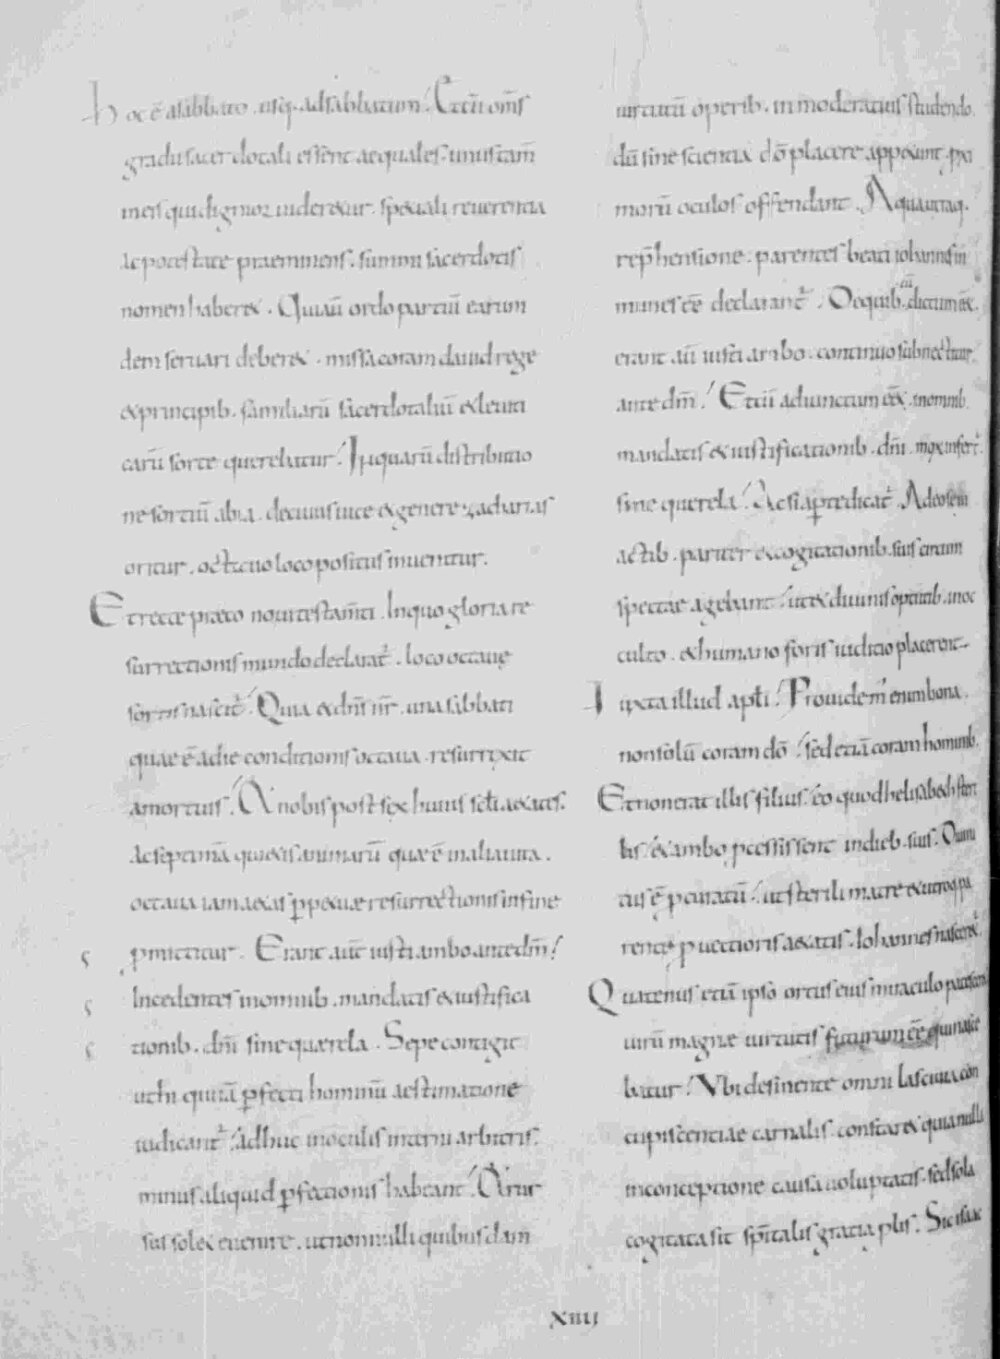 hoc ē asabbato. usq; adsabbatum. Et cū om̄s
gradu sacerdotali essent aequales. unus tam̄
ineis qui dignior uideretur. speciali reuerentia
ac potestate praeminens. summi sacerdotis
nomen haberet. Quia ū ordo partiū earum
dem seruari deberet. missa coram dauid rege
et principib. familiarū sacerdotaliū et leuiti
carū sorte querebatur. In quarū distributio
ne sortiū abia. de cuius uice et genere zacharias
oritur. octauo loco positus inuenitur.
Et recte praeco noui testam̄ti. Inquo gloria re
surrectionis mundo declarat᷑. loco octauę
sortis nascit᷑. Quia et dn̄s nr̄. una sabbati
quae ē adie conditionis octaua. resurrexit
amortuis. A nobis post sex huius scl̄i aetates.
Ac septimā quietis animarū quae ē inalia uita.
octaua iam aetas ꝑpetuae resurrectionis infine
ꝓmittitur. Erant aut̄ iusti ambo ante dm̄.
Incedentes inomnib. mandatis et iustifica
tionib. dn̄i sine quaerela. Sepe contigit
uthi qui iā ꝑfecti hominū aestimatione
iudicant᷑. adhuc inoculis interni arbitris.
minus aliquid ꝑfectionis habeant. At rur
sus solet euenire. ut nonnulli quibusdam
uirtutū operib. inmoderatius studendo
dū sine scientia dō placere appetunt. ꝓxi
morū oculos offendant. A qua utraq.
rep̄hensione. parentes beati iohannis in
munes eē declarant᷑. De quib. cū dictum eēt.
erant aū iusti ambo. continuo subnectitur
ante dm̄. Et cū adiunctum eēt. inomnib.
mandatis et iustificationib. dn̄i. mox infert᷑.
sine querela. Ac si aꝑte dicat᷑. A deo sem
actib. pariter et cogitationib. suis circum
spectae agebant. ut et diuinis optutib. inoc
culto. et humano foris iudicio placerent.
Iuxta illud apl̄i. Prouidem᷑ enim bona.
non solū coram dō. sed etiā coram hominib.
Et non erat illis filius. eo quod helisabeth steri
lis. et ambo ꝓcessissent indieb. suis. Diuini
tus ē ꝓcuratū. ut sterili matre et utroq; pa
rente ꝓuectioris aetatis. Iohannes nasceret᷑.
Quatenus etiā ipso ortus eius miraculo patesceret
uirū magnae uirtutis futurum eē qui nasce
batur. Ubi desinente omni lasciuia con
cupiscentiae carnalis. constaret quia nulla
inconceptione causa uoluptatis. sed sola
cogitata sit sp̄italis gratia ꝓlis. Sic isaac
XIIII